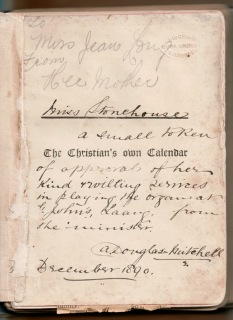 To
Miss Jean
From
Her Mother
Miss Stonehouse
a small token
The Christian's own Calendar
of approval of her
kind & willing services
in playing the organ at
St John's, from
the minister.
A Douglas Mitchell
December 1890.